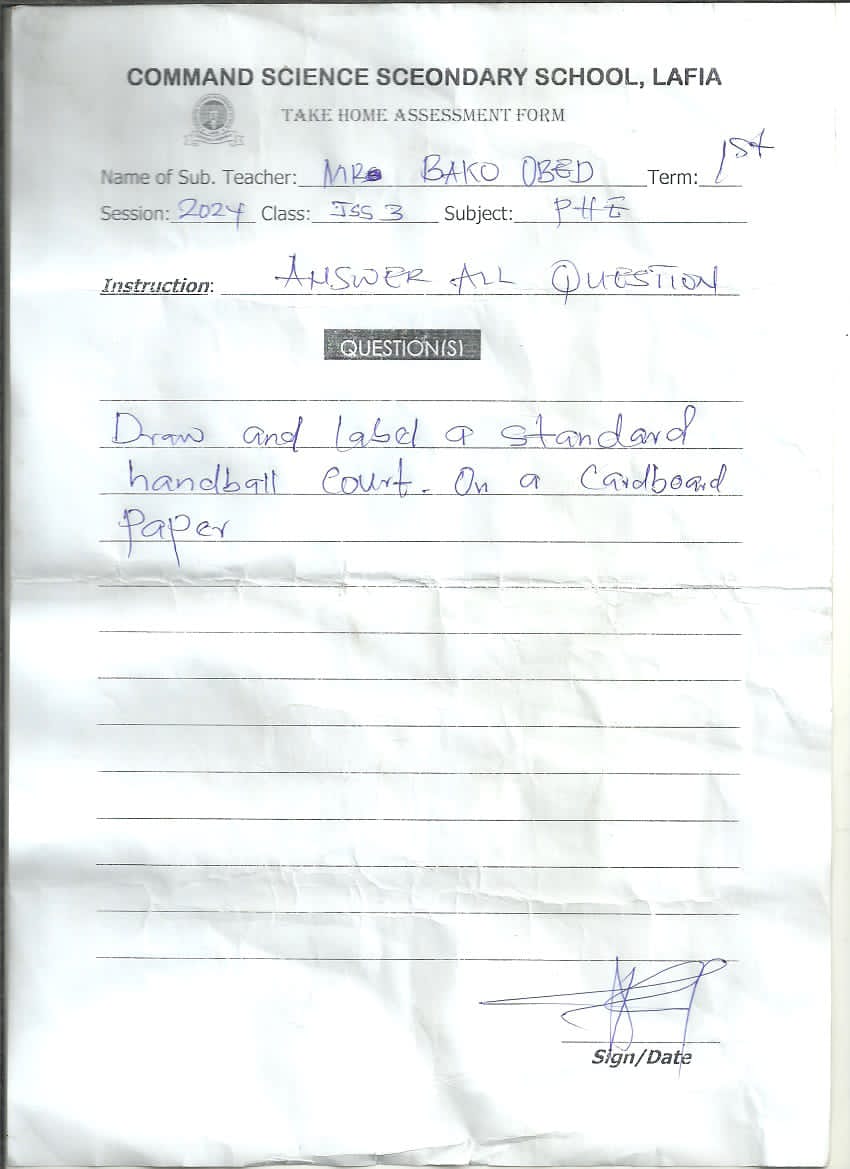 COMMAND SCIENCE SCEONDARY SCHOOL, LAFIA
TAKE HOME ASSESSMENT FORM
Name of Sub. Teacher: MRS BAKO OBED Term: 1st
Session: 2024 Class: JSS 3 Subject: PHE
Instruction: ANSWER ALL QUESTION
QUESTION(S)
Draw and label a standard
handball court. On a Cardboard
Paper
Sign/Date